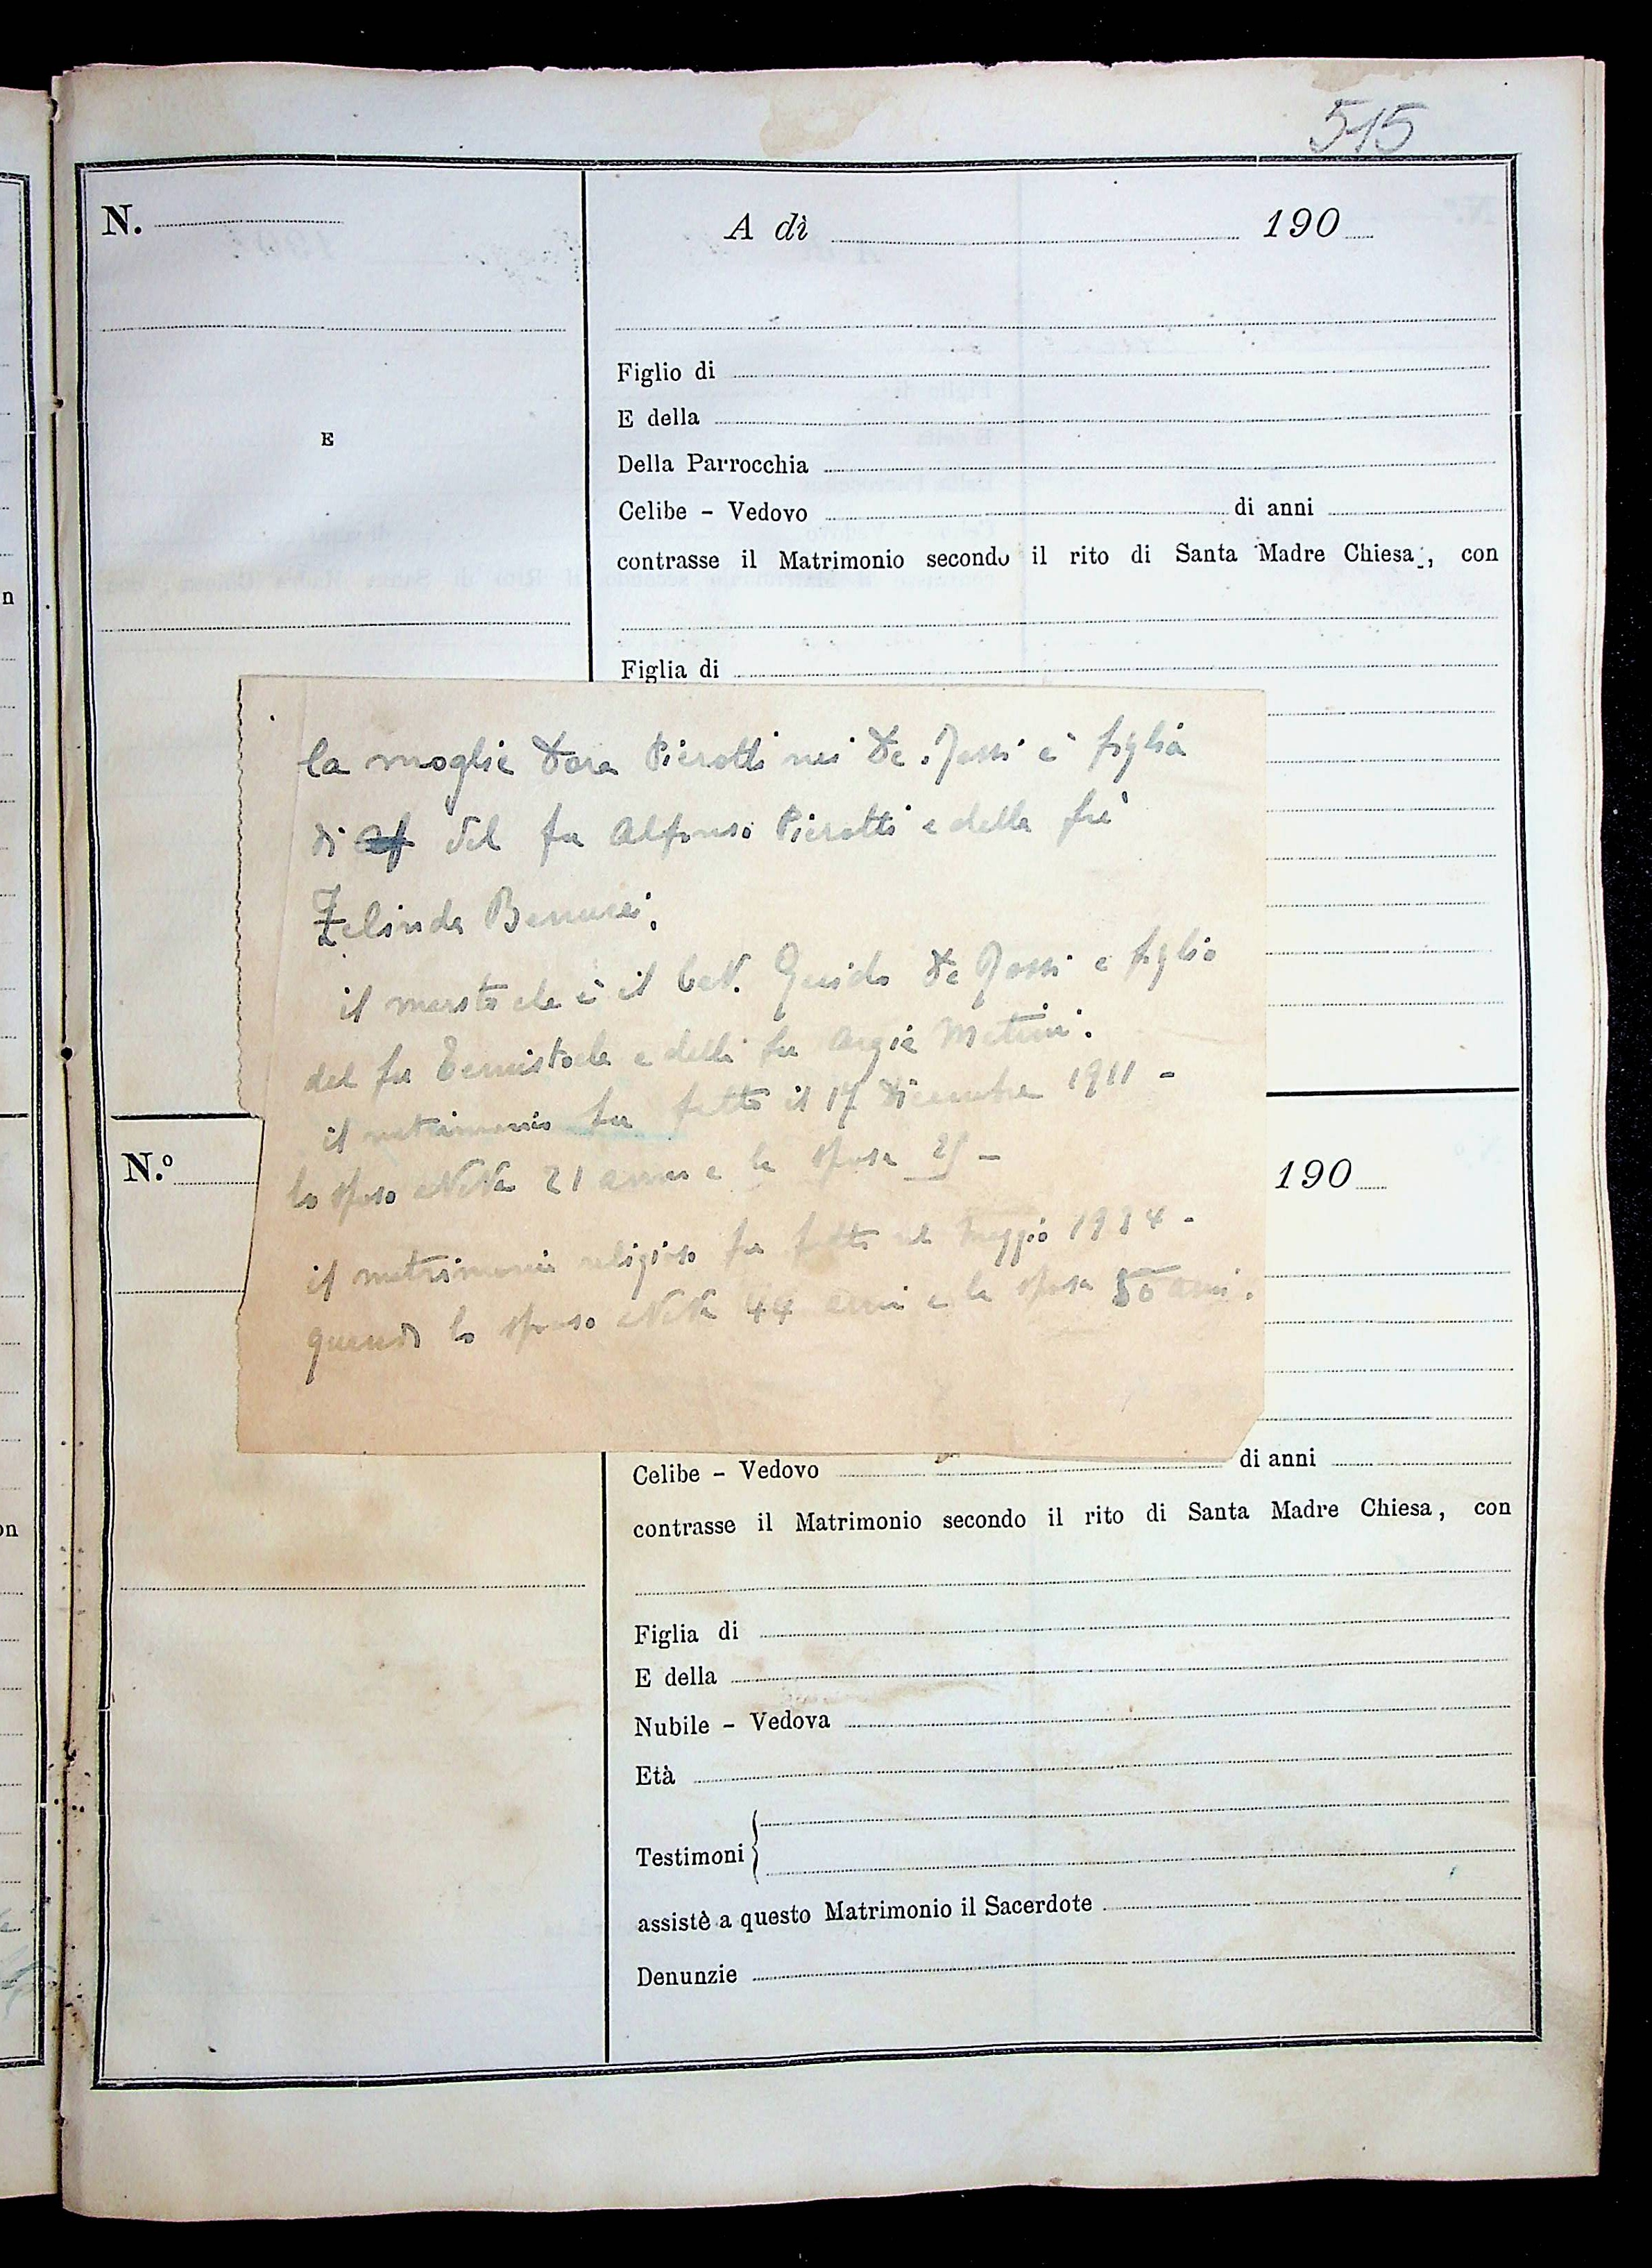 515
N.
A dì 190
Figlio di
E della
E
Della Parrocchia
Celibe - Vedovo di anni
contrasse il Matrimonio secondo il rito di Santa Madre Chiesa, con
Figlia di
la moglie Dora Pierotti nei De Rossi è figlia
di del fu Alfonso Pierotti e della fu
Zelinda Benucci.
il marito che è il Guido De Rossi e figlio
del fu Temistocle e della fu Argia
il matrimonio fu fatto il 17 Dicembre 1911 -
lo sposo 21 anni e la sposa
il matrimonio religioso fu fatto nel Maggio 1934 -
quando lo sposo 44 anni e la sposa 50 anni.
N.º
190
Celibe - Vedovo di anni
contrasse il Matrimonio secondo il rito di Santa Madre Chiesa, con
Figlia di
E della
Nubile - Vedova
Età
Testimoni
assistè a questo Matrimonio il Sacerdote
Denunzie